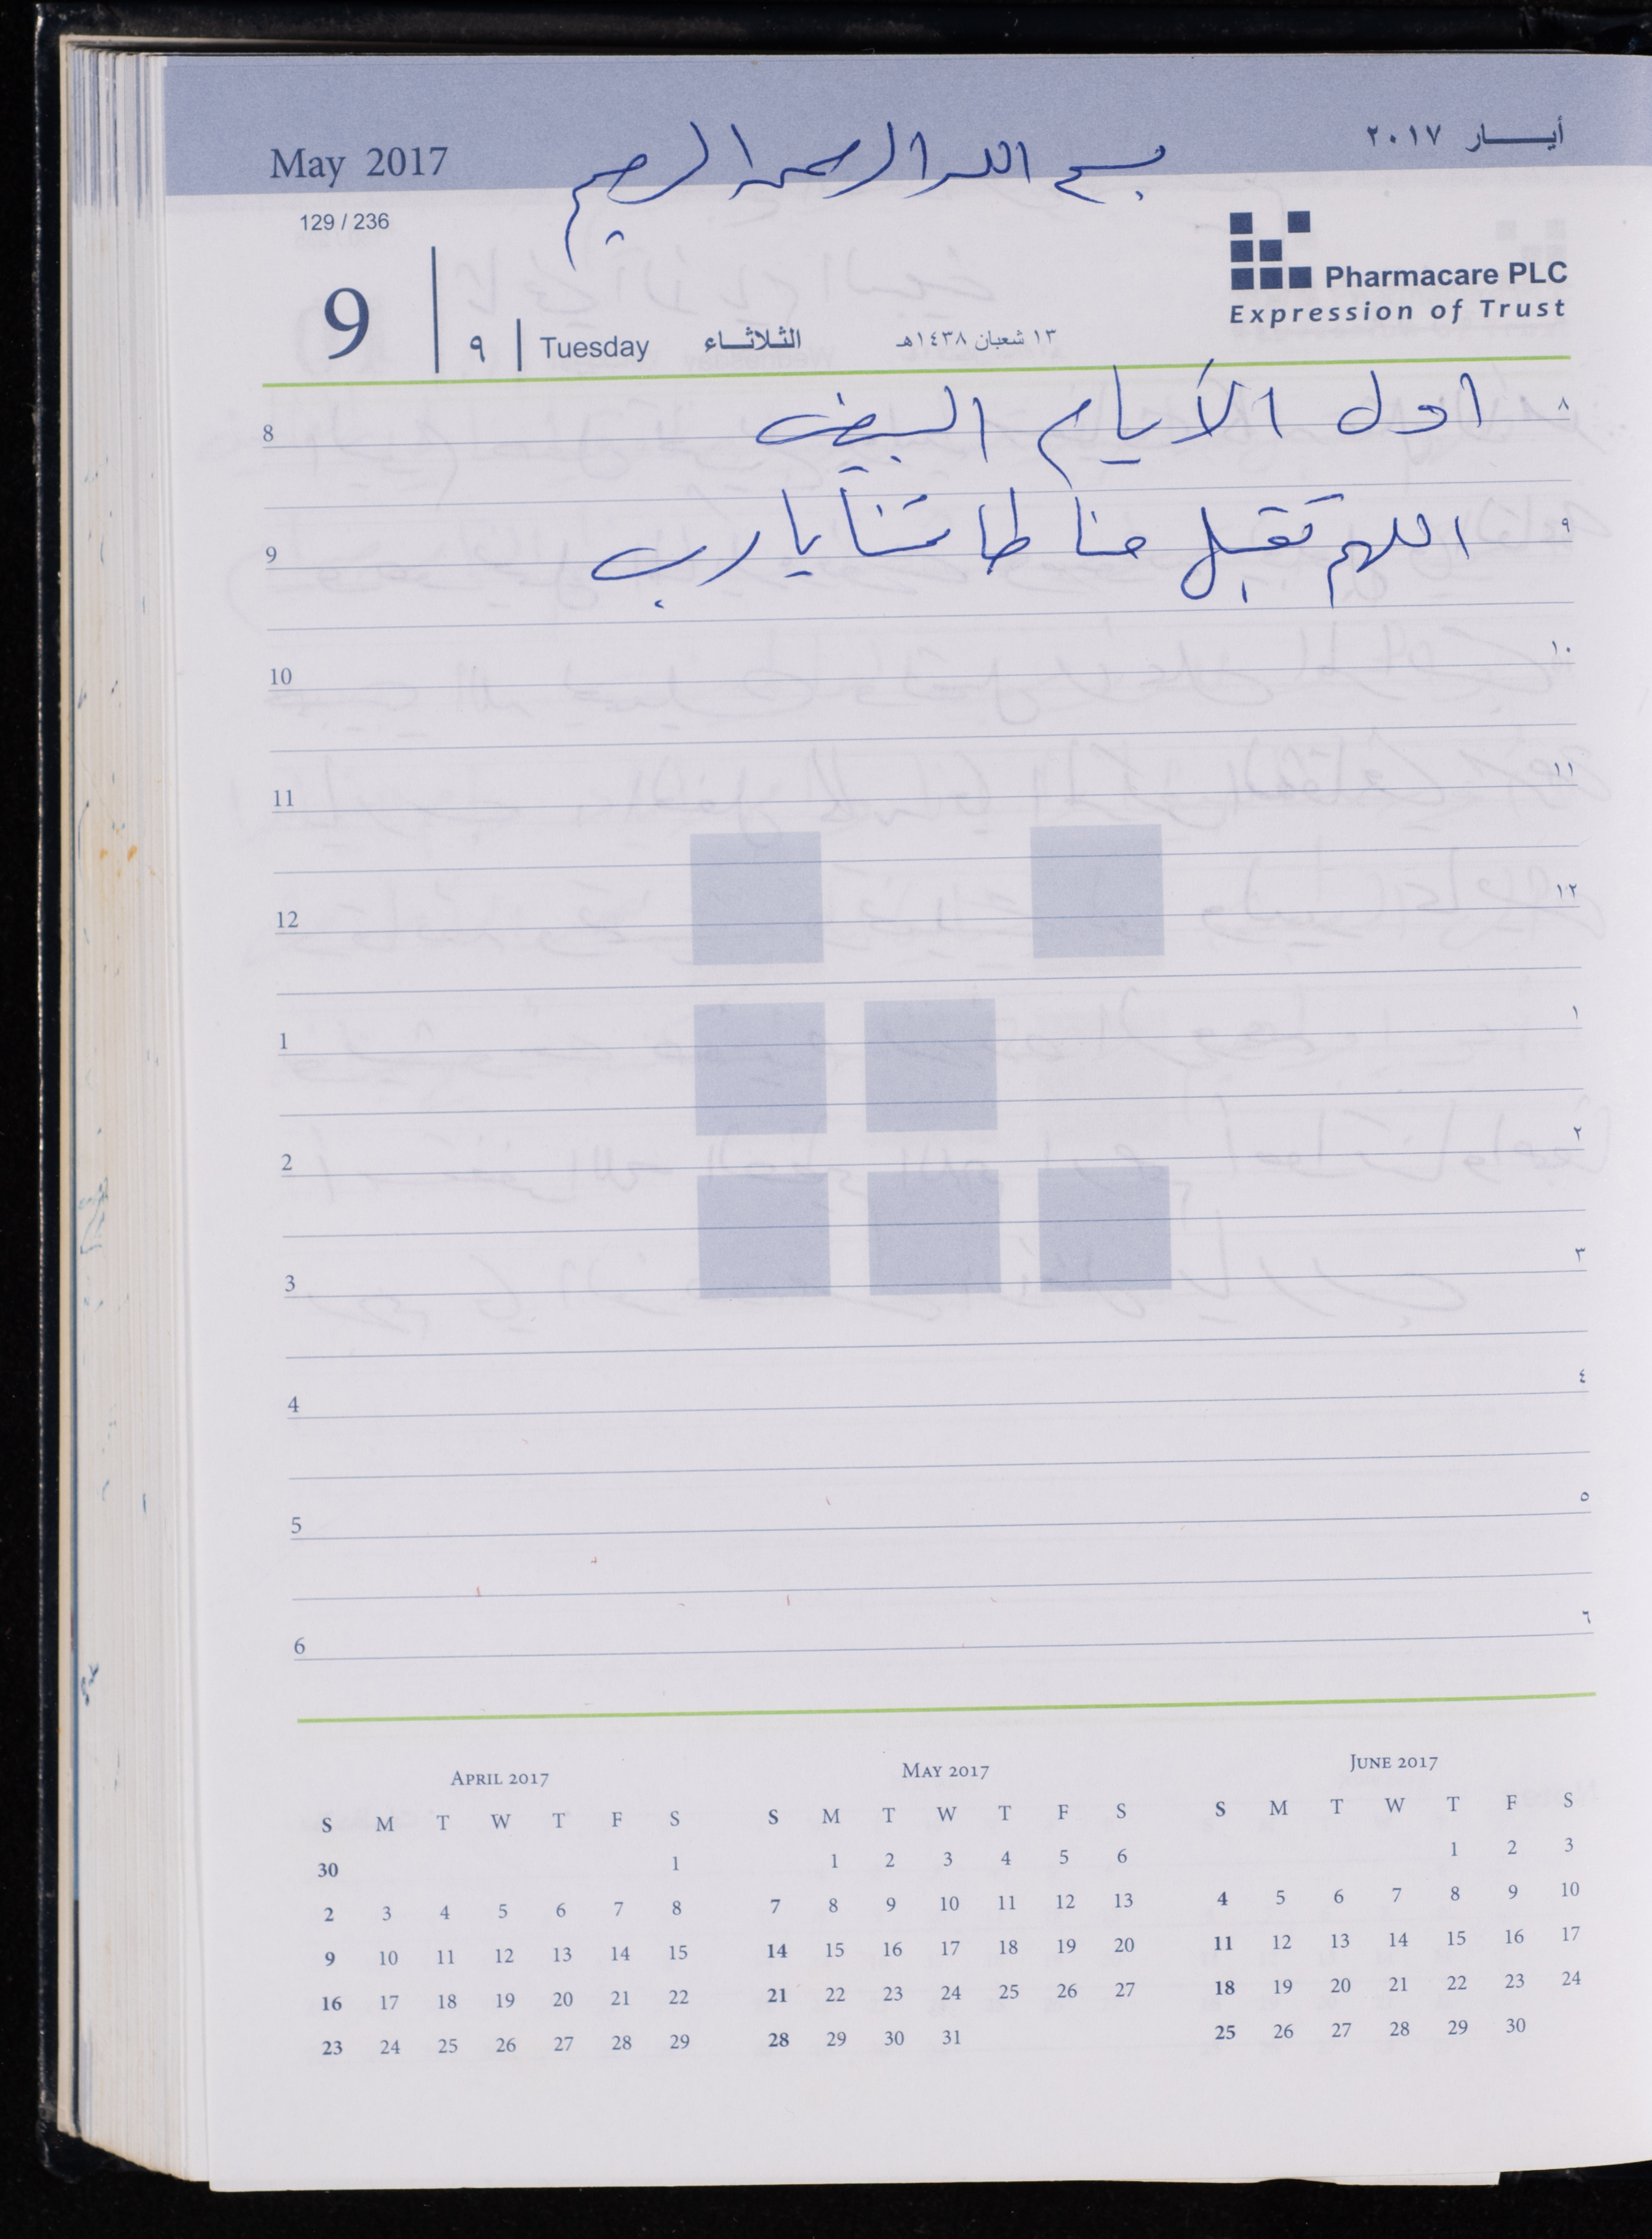 May 2017
بسم الله الرحمن الرحيم
أيـــار ٢٠١٧
129 / 236
9
٩
Tuesday
الثـلاثـــاء
١٣ شعبان ١٤٣٨هـ
Pharmacare PLC
Expression of Trust
8 اول الأيام البيض ٨
9 اللهم تقبل منا طاعتنا يا رب ٩
10 ١٠
11 ١١
12 ١٢
1 ١
2 ٢
3 ٣
4 ٤
5 ٥
6 ٦
APRIL 2017
S M T W T F S
30 1
2 3 4 5 6 7 8
9 10 11 12 13 14 15
16 17 18 19 20 21 22
23 24 25 26 27 28 29
MAY 2017
S M T W T F S
1 2 3 4 5 6
7 8 9 10 11 12 13
14 15 16 17 18 19 20
21 22 23 24 25 26 27
28 29 30 31
JUNE 2017
S M T W T F S
1 2 3
4 5 6 7 8 9 10
11 12 13 14 15 16 17
18 19 20 21 22 23 24
25 26 27 28 29 30